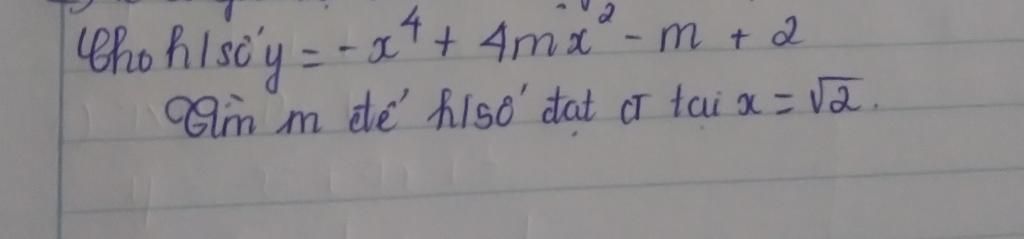 Cho h/số y = -x⁴ + 4mx² - m + 2
Tìm m để h/số đạt CT tại x = √2.